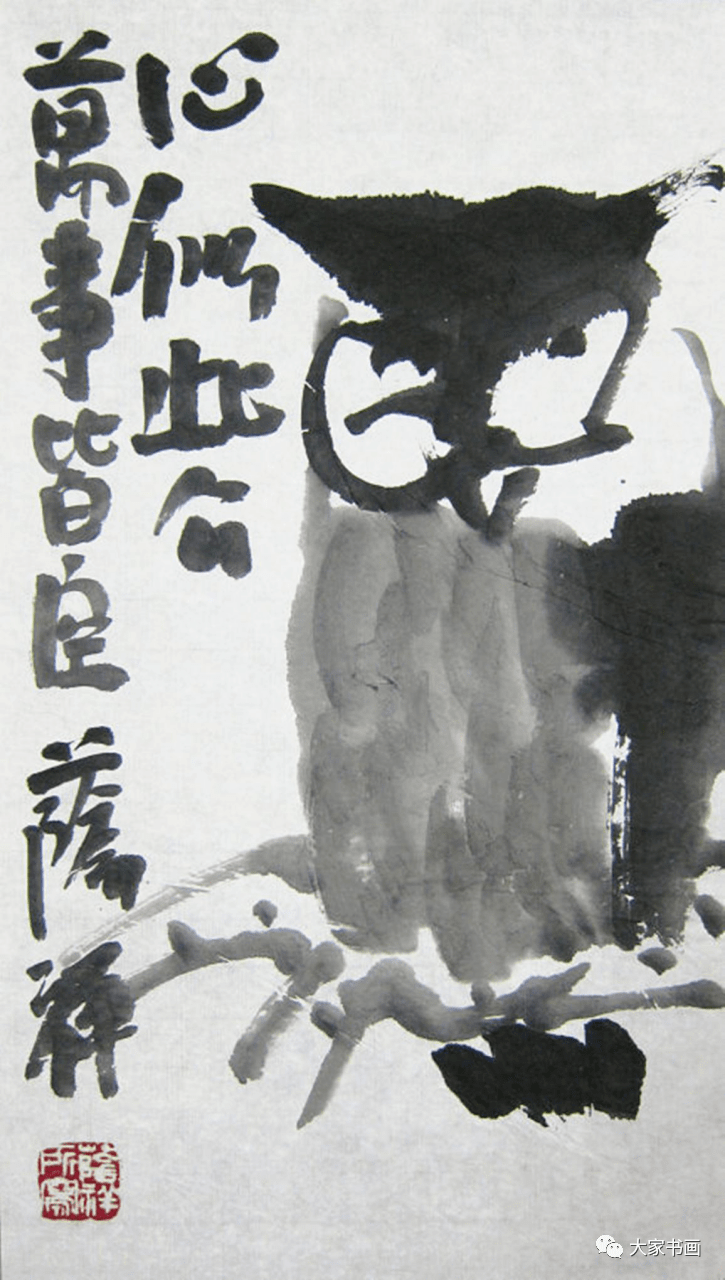 心似此公
萬事皆良 蔭祥
蔭祥
所寫
大家书画